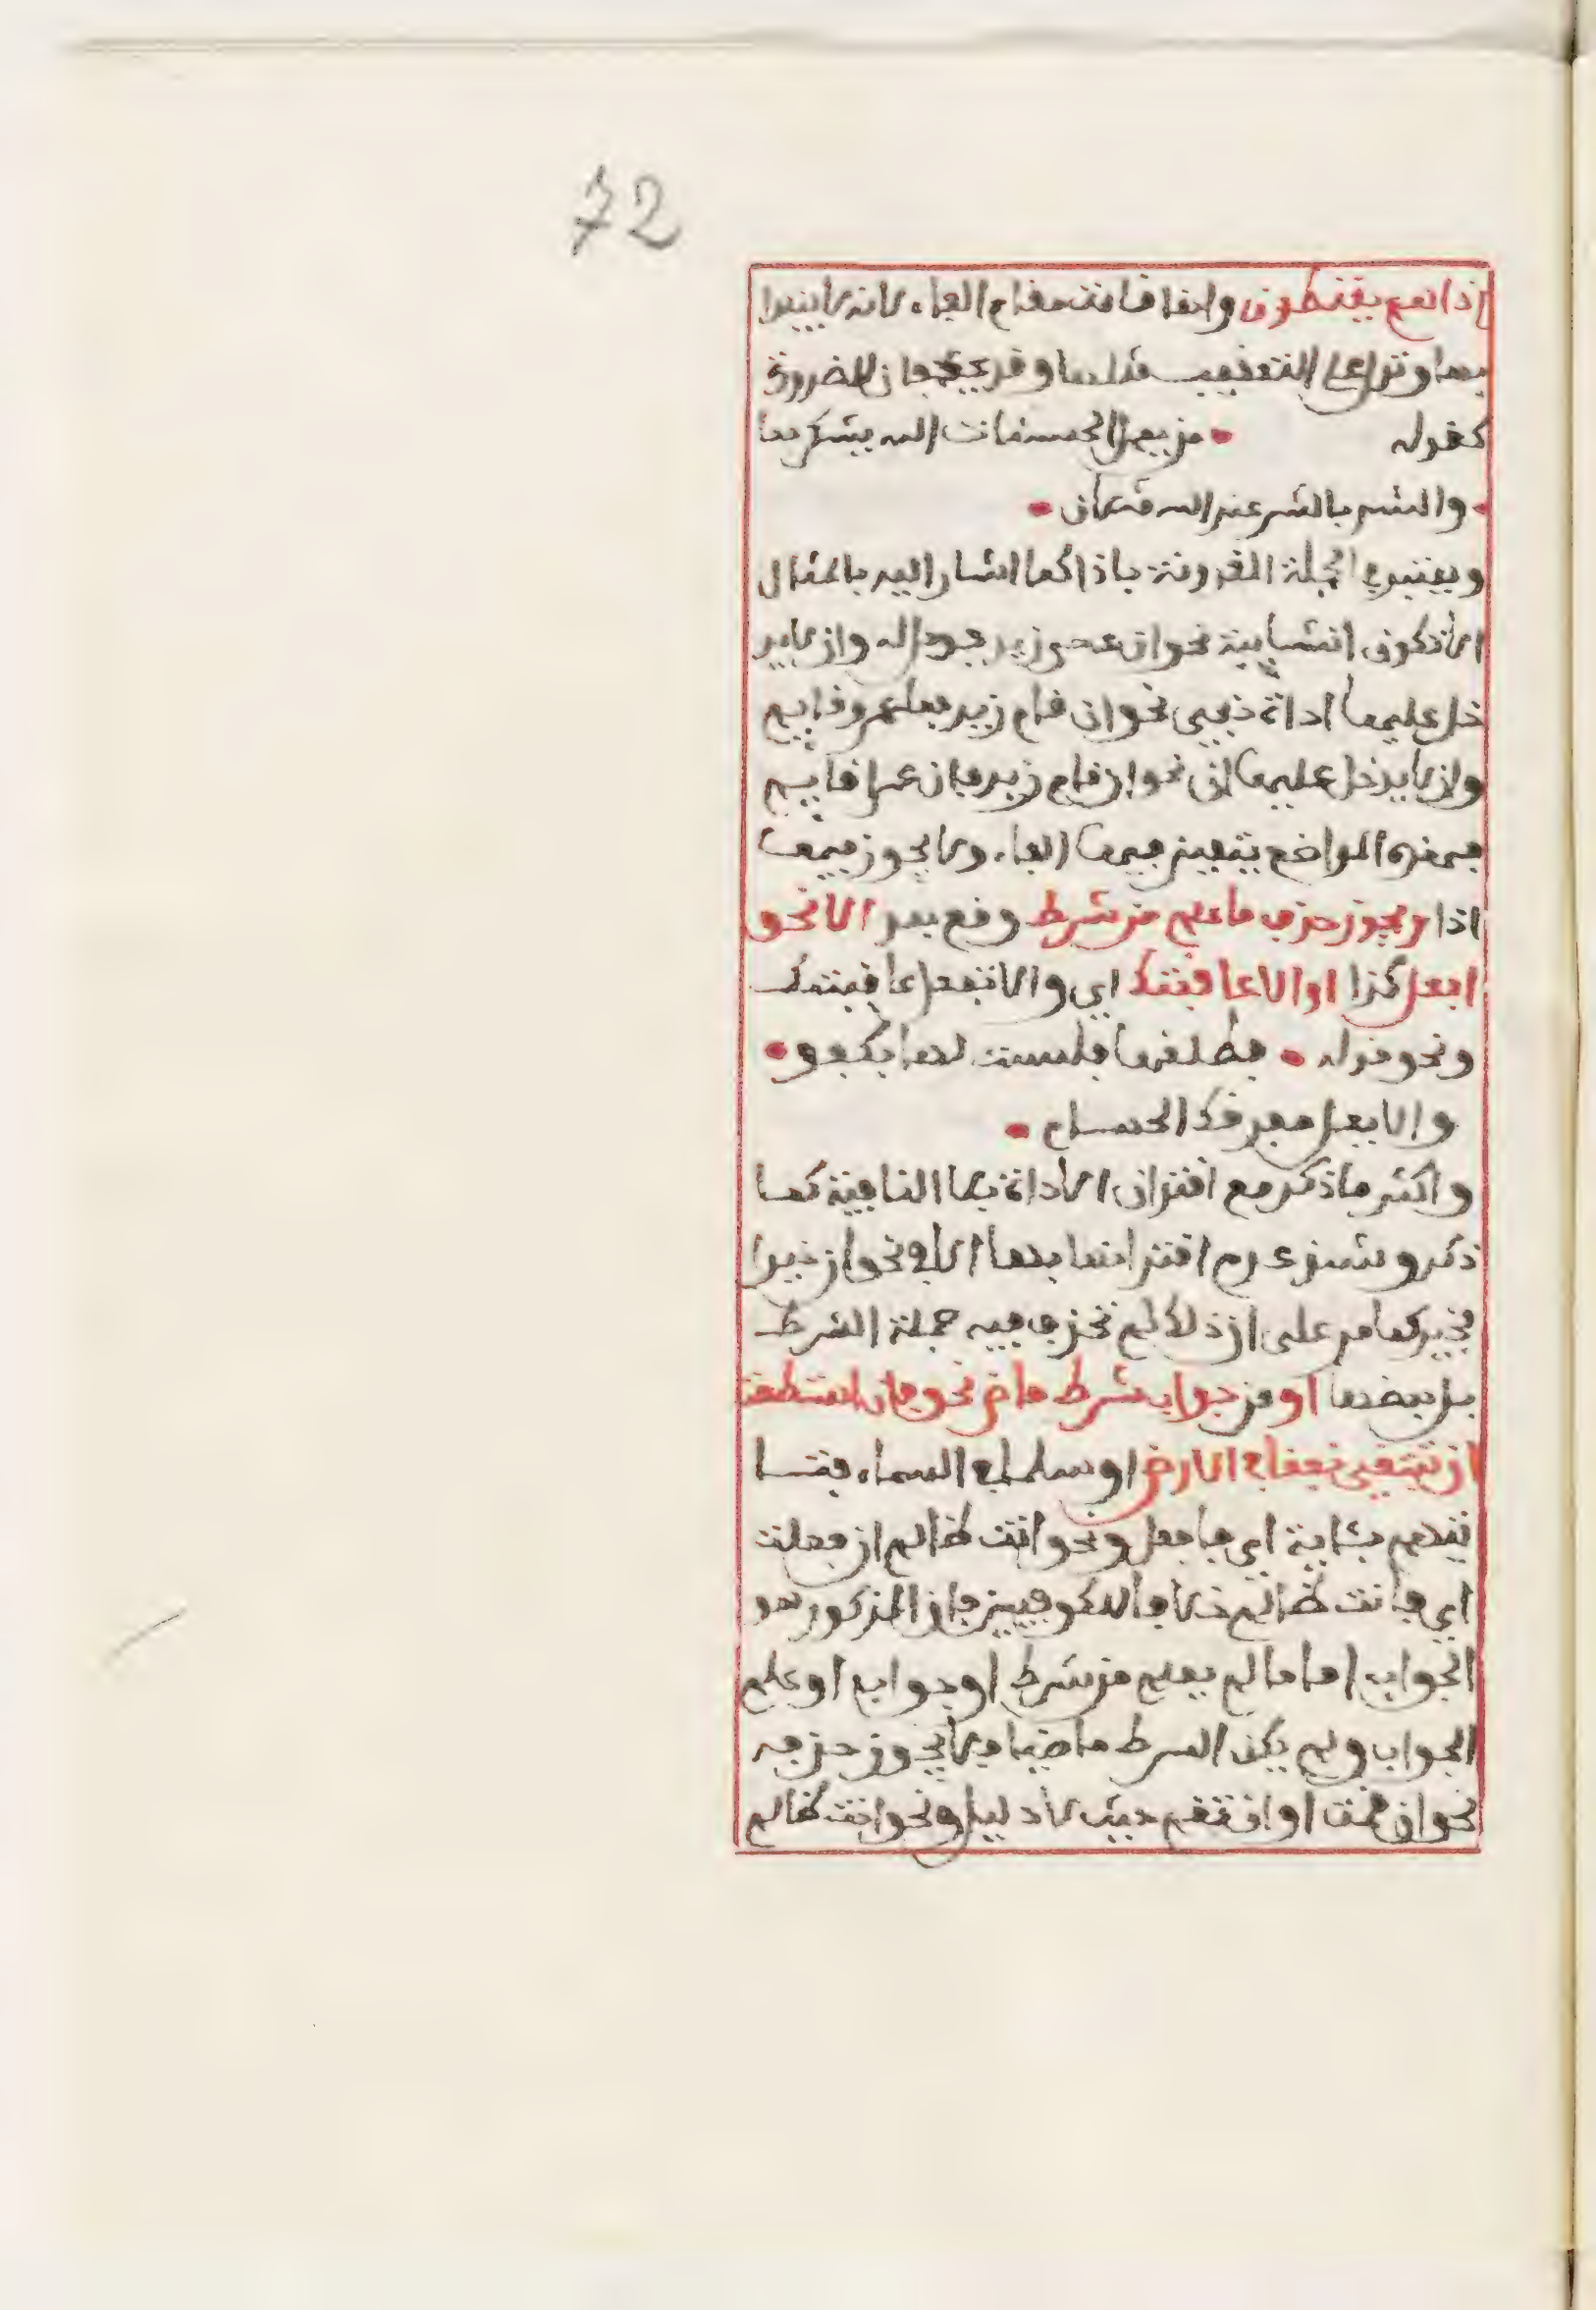 72
اذا هم يقنطون وانما قامت مقام الفاء لانه لا يبتدا
بها وتدل على التعقيب مثلها وقد يحذفان للضرورة
كقوله • من يفعل الحسنات الله يشكرها
• والشر بالشر عند الله مثلان •
ويعتبر في الجملة المقرونة باذا كما اشار اليه بالمثال
الا تكون انشايية نحو ان عصى زيد فويل له وان لا يد
خل عليها اداة نفي نحو ان قام زيد فما عمرو قايم
وان لا يدخل عليها ان نحو ان قام زيد فان عمرا قايم
فهذه المواضع يتعين فيها الفاء ولا يجوز فيها
اذا ويجوز حذف ما علم من شرط وقع بعد الا نحو
افعل كذا او الا عاقبتك اي والا تفعل عاقبتك
ونحو قوله • فطلقها فلست لها بكفو •
والا يعل مفرقك الحسام •
واكثر ما ذكر مع اقتران الاداة بلا النافية كما
ذكر وشذ عدم اقترانها بها الا في نحو ان خيرا
فخير كما مر على ان ذلك لم تحذف فيه جملة الشرط
بل بعضها او من جواب شرط ماض نحو فان استطعت
ان تبتغي نفقا في الارض او سلما في السماء فتا
تيهم بئاية اي فافعل ونحو انت ظالم ان فعلت
اي فانت ظالم خلافا للكوفيين فان المذكور هو
الجواب اما ما لم يعلم من شرط او جواب او علم
الجواب ولم يكن الشرط ماضيا فلا يجوز حذفه
نحو ان قمت او ان تقم حيث لا دليل ونحو انت ظالم